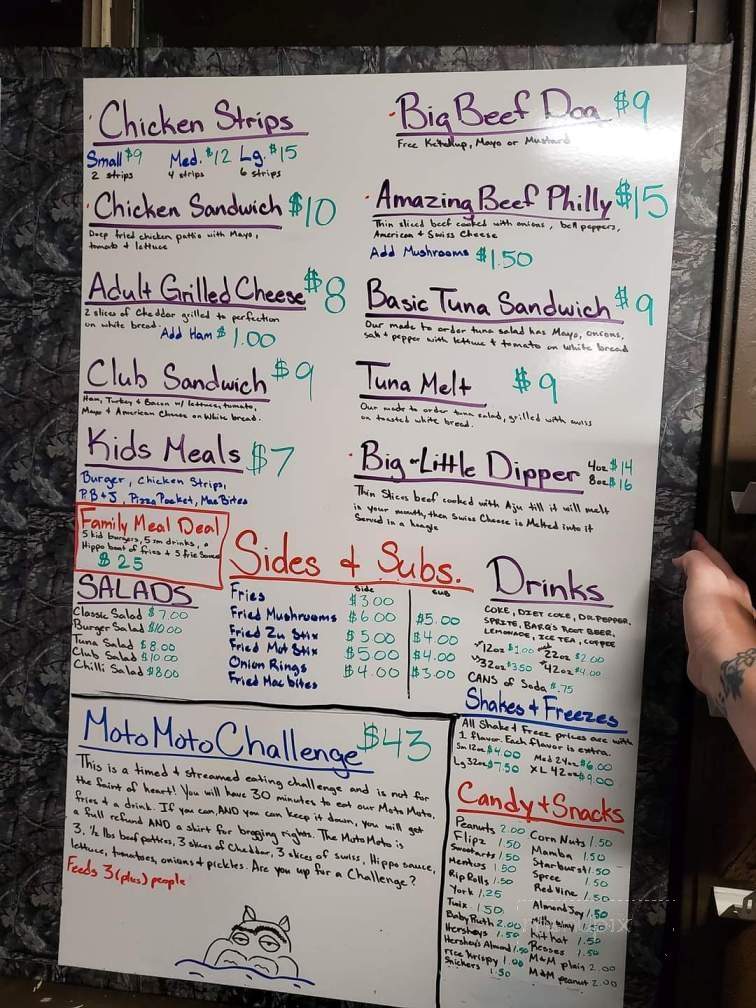 Chicken Strips
Small $9 Med. $12 Lg. $15
2 strips 4 strips 6 strips
Chicken Sandwich $10
Deep fried chicken pattie with Mayo,
tomato + lettuce
Adult Grilled Cheese $8
2 slices of Cheddar grilled to perfection
on white bread.
Add Ham $1.00
Club Sandwich $9
Ham, Turkey & Bacon w/ lettuce, tomato,
Mayo + American Cheese on White bread.
Kids Meals $7
Burger, Chicken Strips,
P.B+J, Pizza Pocket, Mac Bites
Family Meal Deal
5 kid burgers, 5 sm drinks, a
Hippo boat of fries + 5 frie Sauce
$25
Big Beef Dog $9
Free Ketchup, Mayo or Mustard
Amazing Beef Philly $15
Thin sliced beef cooked with onions, bell peppers,
American + Swiss Cheese
Add Mushrooms $1.50
Basic Tuna Sandwich $9
Our made to order tuna salad has Mayo, onions,
salt + pepper with lettuce + tomato on white bread
Tuna Melt $9
Our made to order tuna salad, grilled with swiss
on toasted white bread.
Big-Little Dipper 4oz $14
8oz $16
Thin Slices beef cooked with Aju till it will melt
in your mouth, then Swiss Cheese is Melted into it
Served in a hoagie
SALADS
Classic Salad $7.00
Burger Salad $10.00
Tuna Salad $8.00
Club Salad $10.00
Chilli Salad $8.00
Sides & Subs.
Side Sub
Fries $3.00
Fried Mushrooms $6.00 $5.00
Fried Zu Stix $5.00 $4.00
Fried Mot Stix $5.00 $4.00
Onion Rings $4.00 $3.00
Fried Mac bites
Drinks
COKE, DIET COKE, DR. PEPPER,
SPRITE, BARQ'S ROOT BEER,
LEMONADE, ICE TEA, COFFEE
12oz $1.00 22oz $2.00
32oz $3.50 42oz $4.00
CANS of Soda $.75
Shakes + Freezes
All Shake + Freeze prices are with
1 flavor. Each flavor is extra.
Sm 12oz $4.00 Med 24oz $6.00
Lg 32oz $7.50 XL 42oz $9.00
Moto Moto Challenge $43
This is a timed + streamed eating challenge and is not for
the faint of heart! You will have 30 minutes to eat our Moto Moto,
fries + a drink. If you can, AND you can keep it down, you will get
a full refund AND a shirt for bragging rights. The Moto Moto is
3, ½ lbs beef patties, 3 slices of Cheddar, 3 slices of swiss, Hippo sauce,
lettuce, tomatoes, onions + pickles. Are you up for a Challenge?
Feeds 3 (plus) people
Candy + Snacks
Peanuts 2.00 Corn Nuts 1.50
Flipz 1.50 Mamba 1.50
Sweetarts 1.50 Starburst 1.50
Mentos 1.50 Spree 1.50
Rip Rolls 1.50 Red Vine 1.50
York 1.25 Almond Joy 1.50
Twix 1.50 Milky Way 1.50
Baby Ruth 2.00 Kit Kat 1.50
Hersheys 1.50 Reeses 1.50
Hersheys Almond 1.50 M&M plain 2.00
rice Krispy 1.00 M&M peanut 2.00
Snickers 1.50